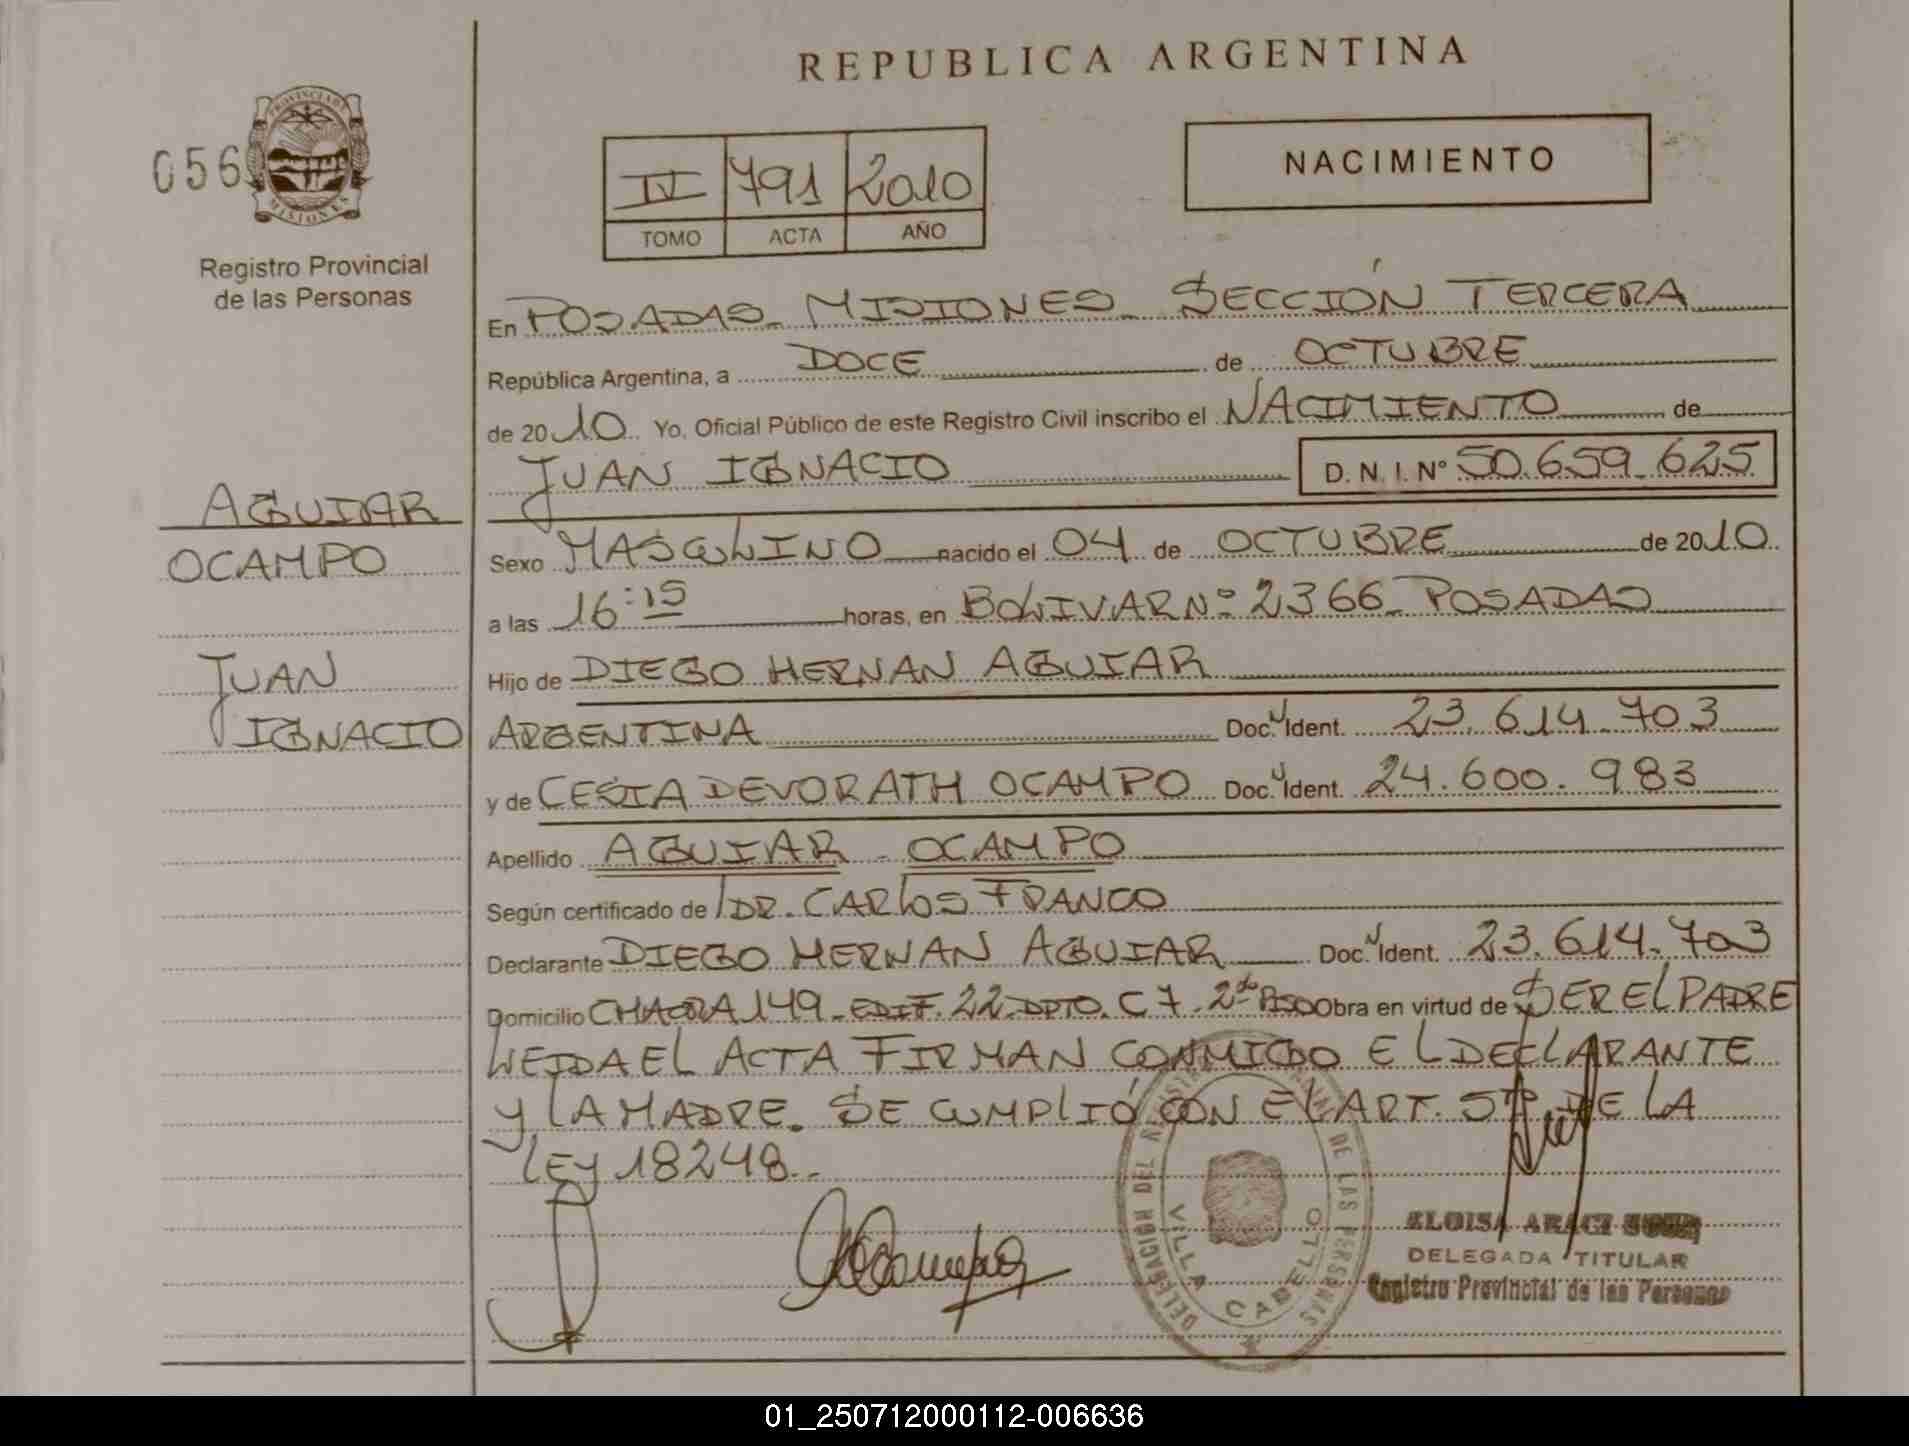 REPUBLICA ARGENTINA
056
PROVINCIA DE
MISIONES
Registro Provincial
de las Personas
IV 791 2010
TOMO ACTA AÑO
NACIMIENTO
En POSADAS- MISIONES- SECCIÓN TERCERA
República Argentina, a DOCE de OCTUBRE
de 2010. Yo, Oficial Público de este Registro Civil inscribo el NACIMIENTO de
JUAN IGNACIO D.N.I. Nº 50.659.625
AGUIAR
OCAMPO
JUAN
IGNACIO
Sexo MASCULINO nacido el 04 de OCTUBRE de 2010.
a las 16:15 horas, en BOLIVAR Nº 2366- POSADAS
Hijo de DIEGO HERNAN AGUIAR
ARGENTINA Doc. Ident. 23.614.703
y de CESIA DEVORATH OCAMPO Doc. Ident. 24.600.983
Apellido AGUIAR - OCAMPO
Según certificado de DR. CARLOS FRANCO
Declarante DIEGO HERNAN AGUIAR Doc. Ident. 23.614.703
Domicilio CHACRA 149- EDIF. 22- DPTO. C 7- 2do PISO Obra en virtud de SER EL PADRE
LEIDA EL ACTA FIRMAN CONMIGO EL DECLARANTE
Y LA MADRE. SE CUMPLIÓ CON EL ART. 5to DE LA
LEY 18248.-
DELEGACION DEL REGISTRO PROVINCIAL DE LAS PERSONAS
VILLA CABELLO
ELOISA ARACI
DELEGADA TITULAR
Registro Provincial de las Personas
01_250712000112-006636